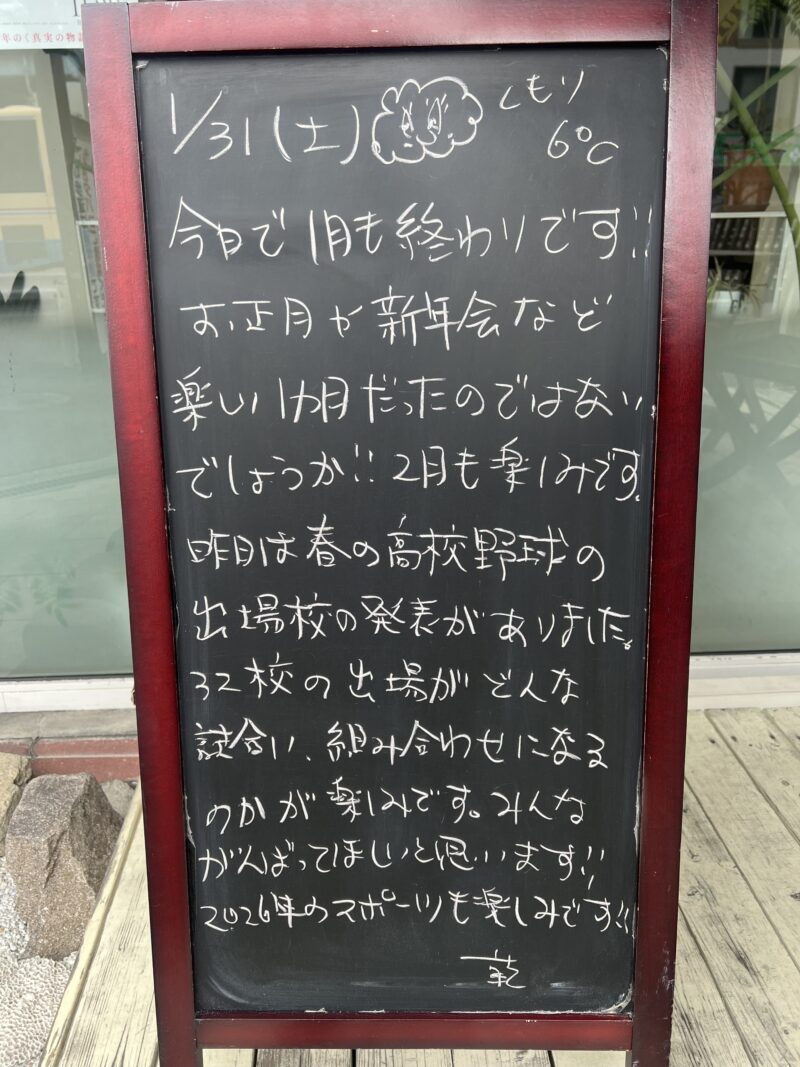 年のく真実の物
1/31(土) くもり
6℃
今日で1月も終わりです!!
お正月や新年会など
楽しい1ヵ月だったのではない
でしょうか!! 2月も楽しみです。
昨日は春の高校野球の
出場校の発表がありました。
32校の出場がどんな
試合い、組み合わせになる
のかが楽しみです。みんな
がんばってほしいと思います!!
2026年のスポーツも楽しみです!!